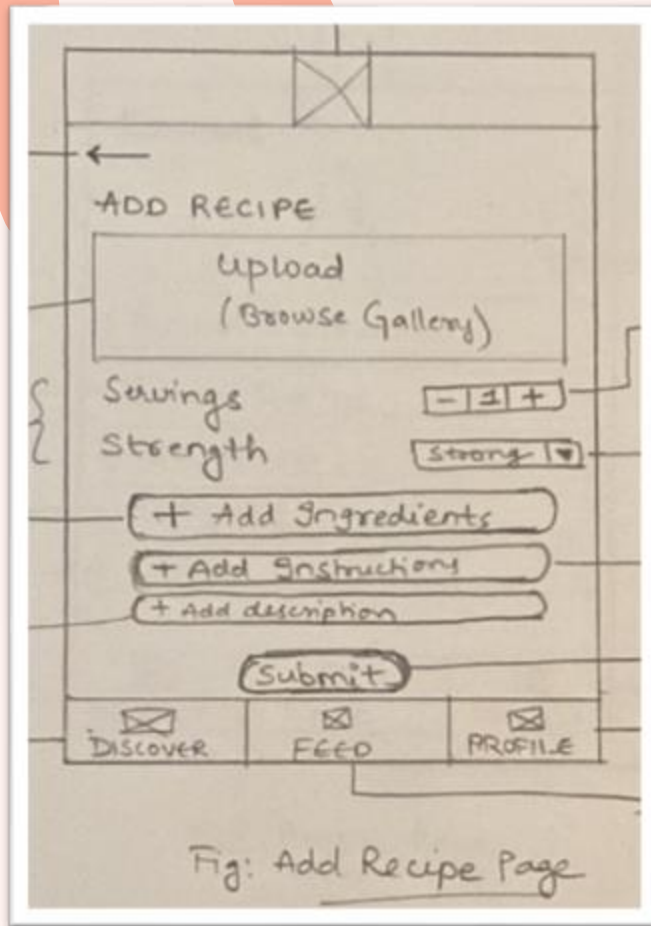 ADD RECIPE
Upload
(Browse Gallery)
Servings - 1 +
Strength Strong ▼
+ Add Ingredients
+ Add Instructions
+ Add description
Submit
DISCOVER FEED PROFILE
Fig: Add Recipe Page